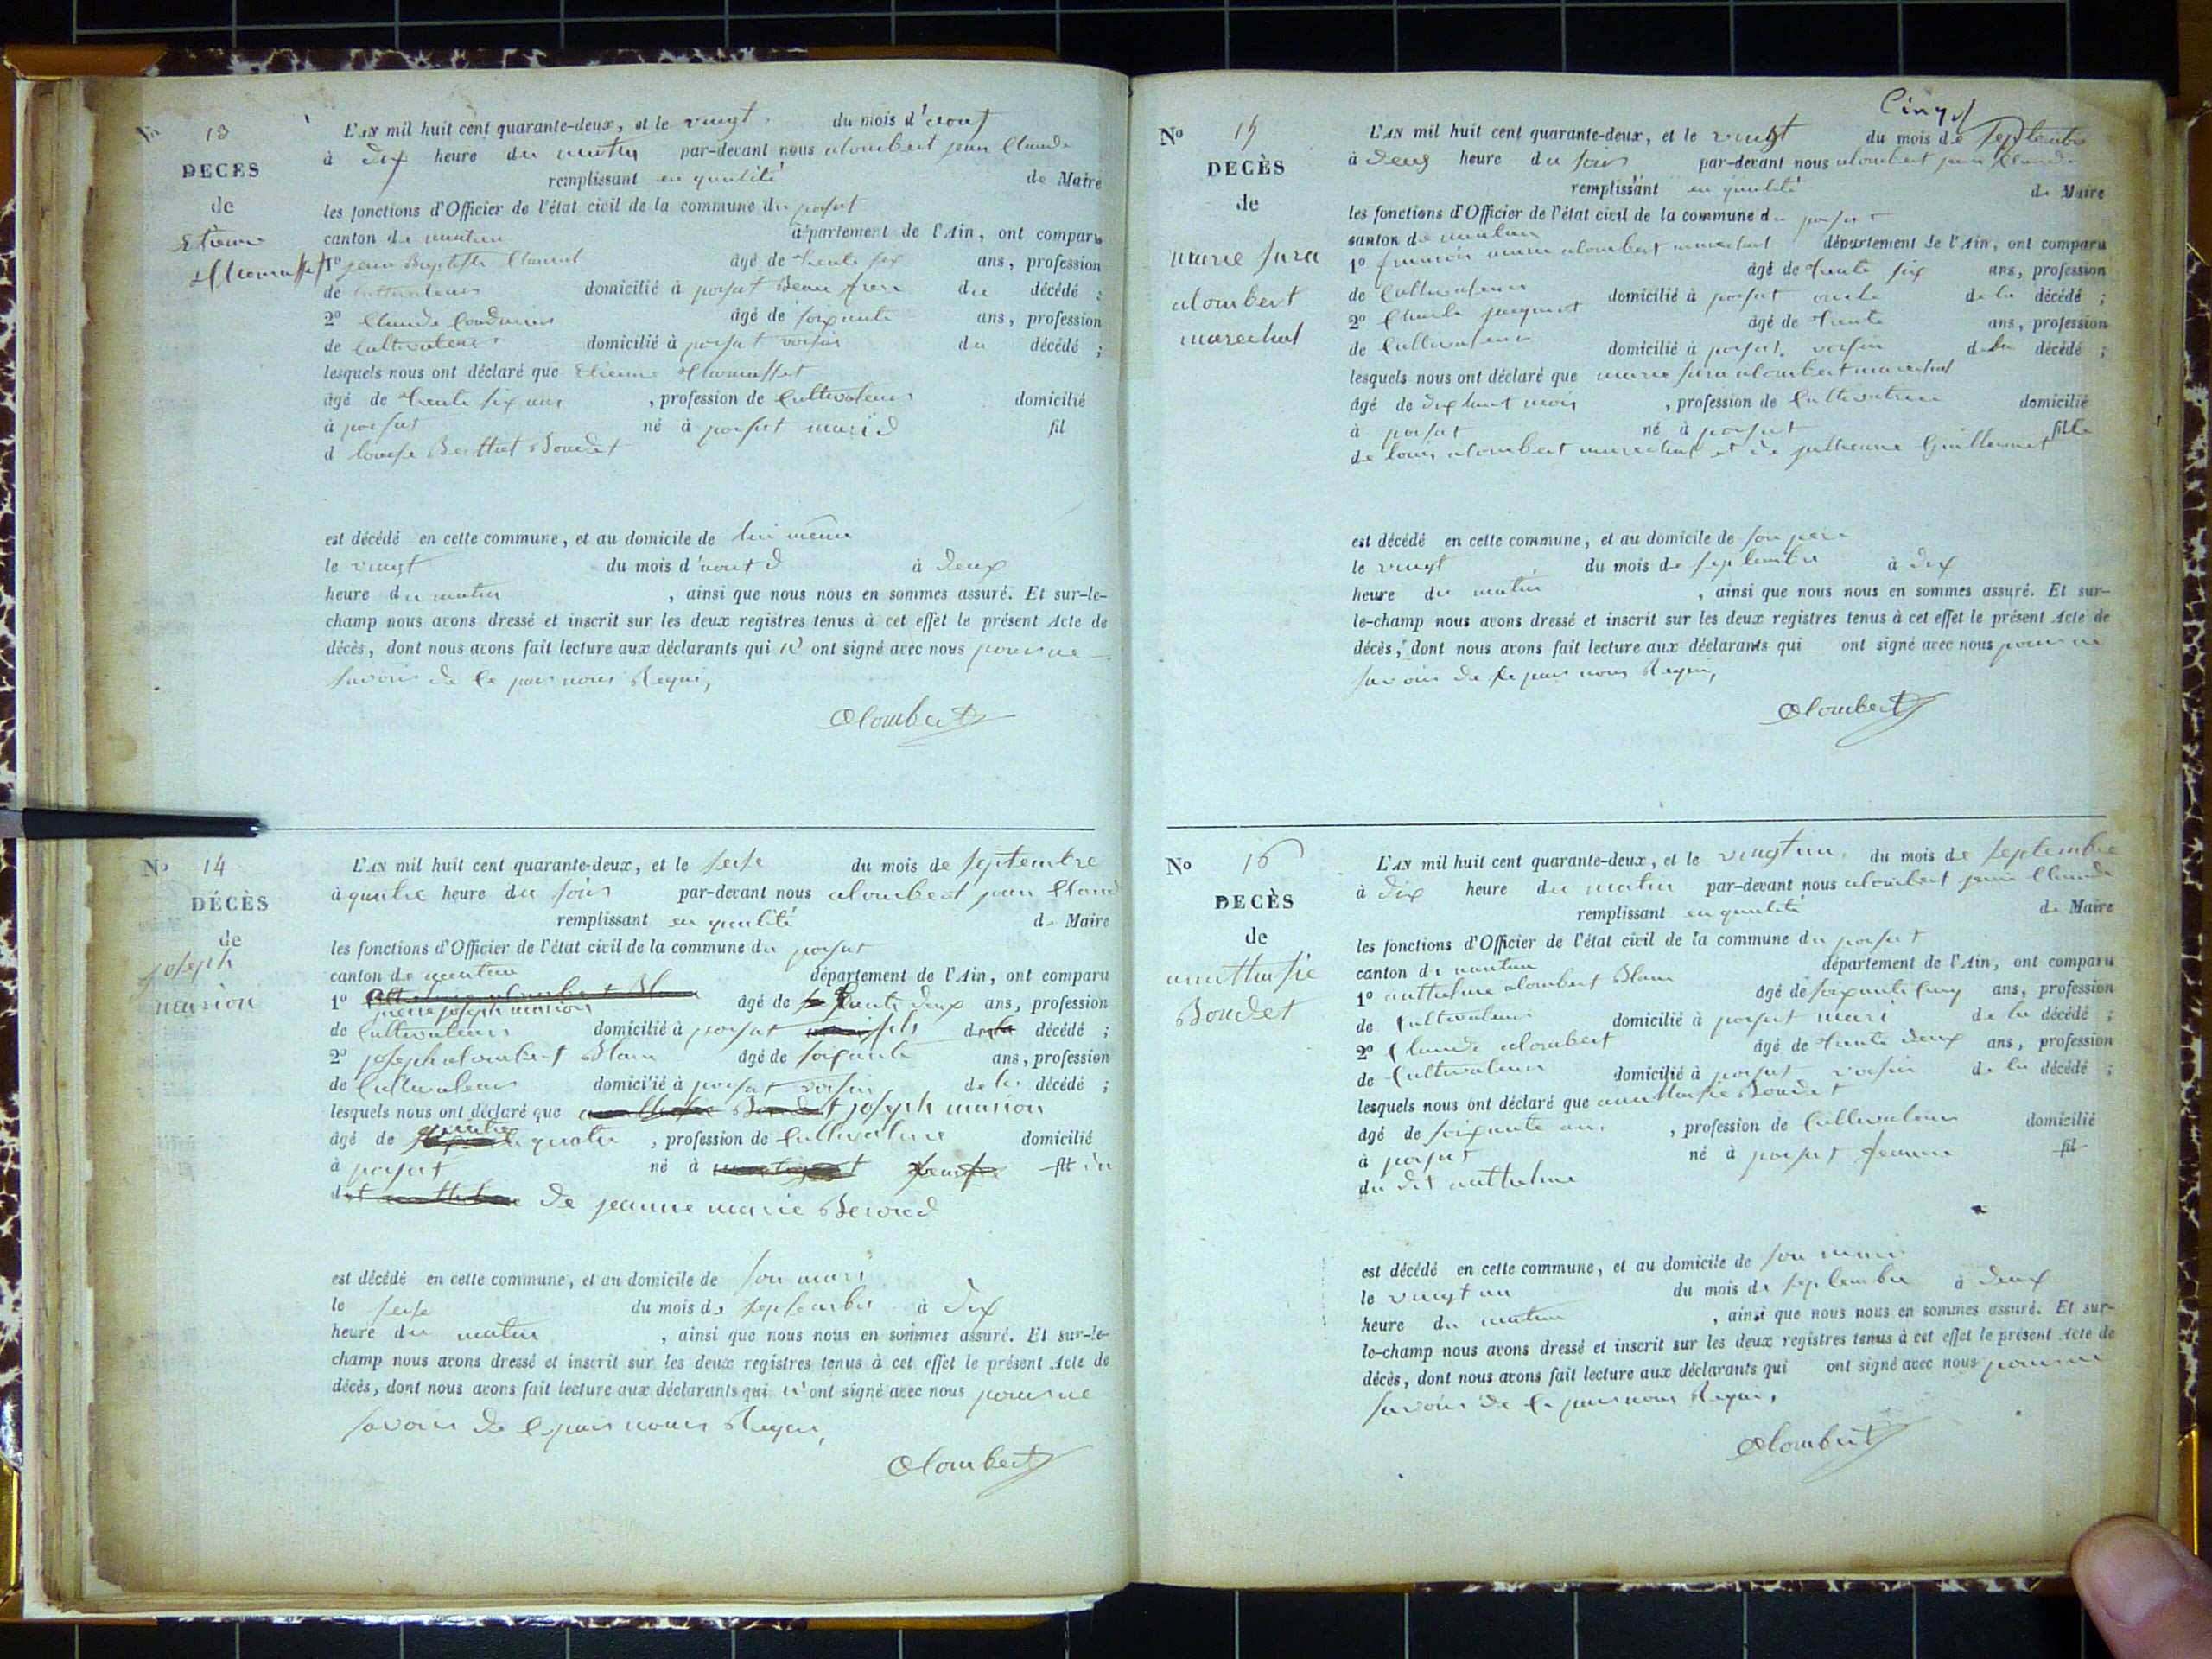 No 13
DECES
de
Etienne
L'AN mil huit cent quarante-deux, et le vingt du mois d'aout
à dix heure du matin par-devant nous alombert jean Claude
remplissant en qualité de Maire
les fonctions d'Officier de l'état civil de la commune du porsat
canton de nantua département de l'Ain, ont comparu
1º jean Baptiste âgé de trente six ans, profession
de Cultivateur domicilié à porsat Beau frere du décédé ;
2º Claude âgé de soixante ans, profession
de Cultivateur domicilié à porsat voisin du décédé ;
lesquels nous ont déclaré que Etienne
âgé de trente six ans , profession de Cultivateur domicilié
à porsat né à porsat marié fil
d louise Berthet Boudet
est décédé en cette commune, et au domicile de lui meme
le vingt du mois d'aout à deux
heure du matin , ainsi que nous nous en sommes assuré. Et sur-le-
champ nous avons dressé et inscrit sur les deux registres tenus à cet effet le présent Acte de
décès, dont nous avons fait lecture aux déclarants qui n' ont signé avec nous pour ne
savoir de ce par nous Requi,
alombert
No 14
DÉCÈS
de
joseph
marion
L'AN mil huit cent quarante-deux, et le seise du mois de septembre
à quatre heure du soir par-devant nous alombert jean Claud
remplissant en qualité de Maire
les fonctions d'Officier de l'état civil de la commune du porsat
canton de nantua département de l'Ain, ont comparu
1º pierre joseph marion âgé de trente deux ans, profession
de Cultivateur domicilié à porsat fils de la décédé ;
2º joseph alombert Blanc âgé de soixante ans, profession
de Cultivateur domicilié à porsat voisin de la décédé ;
lesquels nous ont déclaré que joseph marion
âgé de quatre , profession de Cultivateur domicilié
à porsat né à fil
de jeanne marie Berord
est décédé en cette commune, et au domicile de son mari
le seise du mois de septembre à dix
heure du matin , ainsi que nous nous en sommes assuré. Et sur-le-
champ nous avons dressé et inscrit sur les deux registres tenus à cet effet le présent Acte de
décès, dont nous avons fait lecture aux déclarants qui n' ont signé avec nous pour ne
savoir de ce par nous Requi,
alombert
Cinq
No 15
DECÈS
de
marie
alombert
marechal
L'AN mil huit cent quarante-deux, et le vingt du mois de septembre
à deux heure du soir par-devant nous alombert jean Claude
remplissant en qualité de Maire
les fonctions d'Officier de l'état civil de la commune du porsat
canton de nantua département de l'Ain, ont comparu
1º francois marie alombert marechal âgé de trente six ans, profession
de Cultivateur domicilié à porsat oncle de la décédé ;
2º jacquet âgé de trente ans, profession
de Cultivateur domicilié à porsat. voisin de la décédé ;
lesquels nous ont déclaré que marie alombert marechal
âgé de dix huit mois , profession de Cultivatrice domicilié
à porsat né à porsat fille
de louis alombert marechal et de julienne Guillermet
est décédé en cette commune, et au domicile de son pere
le vingt du mois de septembre à dix
heure du matin , ainsi que nous nous en sommes assuré. Et sur-
le-champ nous avons dressé et inscrit sur les deux registres tenus à cet effet le présent Acte de
décès, dont nous avons fait lecture aux déclarants qui ont signé avec nous pour ne
savoir de ce par nous Requi,
alombert
No 16
DECÈS
de
Boudet
L'AN mil huit cent quarante-deux, et le vingt un du mois de septembre
à dix heure du matin par-devant nous alombert jean Claude
remplissant en qualité de Maire
les fonctions d'Officier de l'état civil de la commune du porsat
canton de nantua département de l'Ain, ont comparu
1º anthelme alombert Blanc âgé de soixante cinq ans, profession
de Cultivateur domicilié à porsat mari de la décédé ;
2º Claude alombert âgé de trente deux ans, profession
de Cultivateur domicilié à porsat voisin de la décédé ;
lesquels nous ont déclaré que Boudet
âgé de soixante ans , profession de Cultivateur domicilié
à porsat né à porsat femme fil
du dit anthelme
est décédé en cette commune, et au domicile de son mari
le vingt un du mois de septembre à deux
heure du matin , ainsi que nous nous en sommes assuré. Et sur-
le-champ nous avons dressé et inscrit sur les deux registres tenus à cet effet le présent Acte de
décès, dont nous avons fait lecture aux déclarants qui ont signé avec nous pour ne
savoir de ce par nous Requi,
alombert